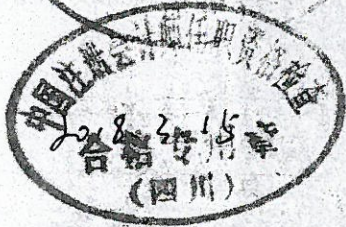 中国注册会计师任职资格检查
2018.3.15
合格专用章
(四川)